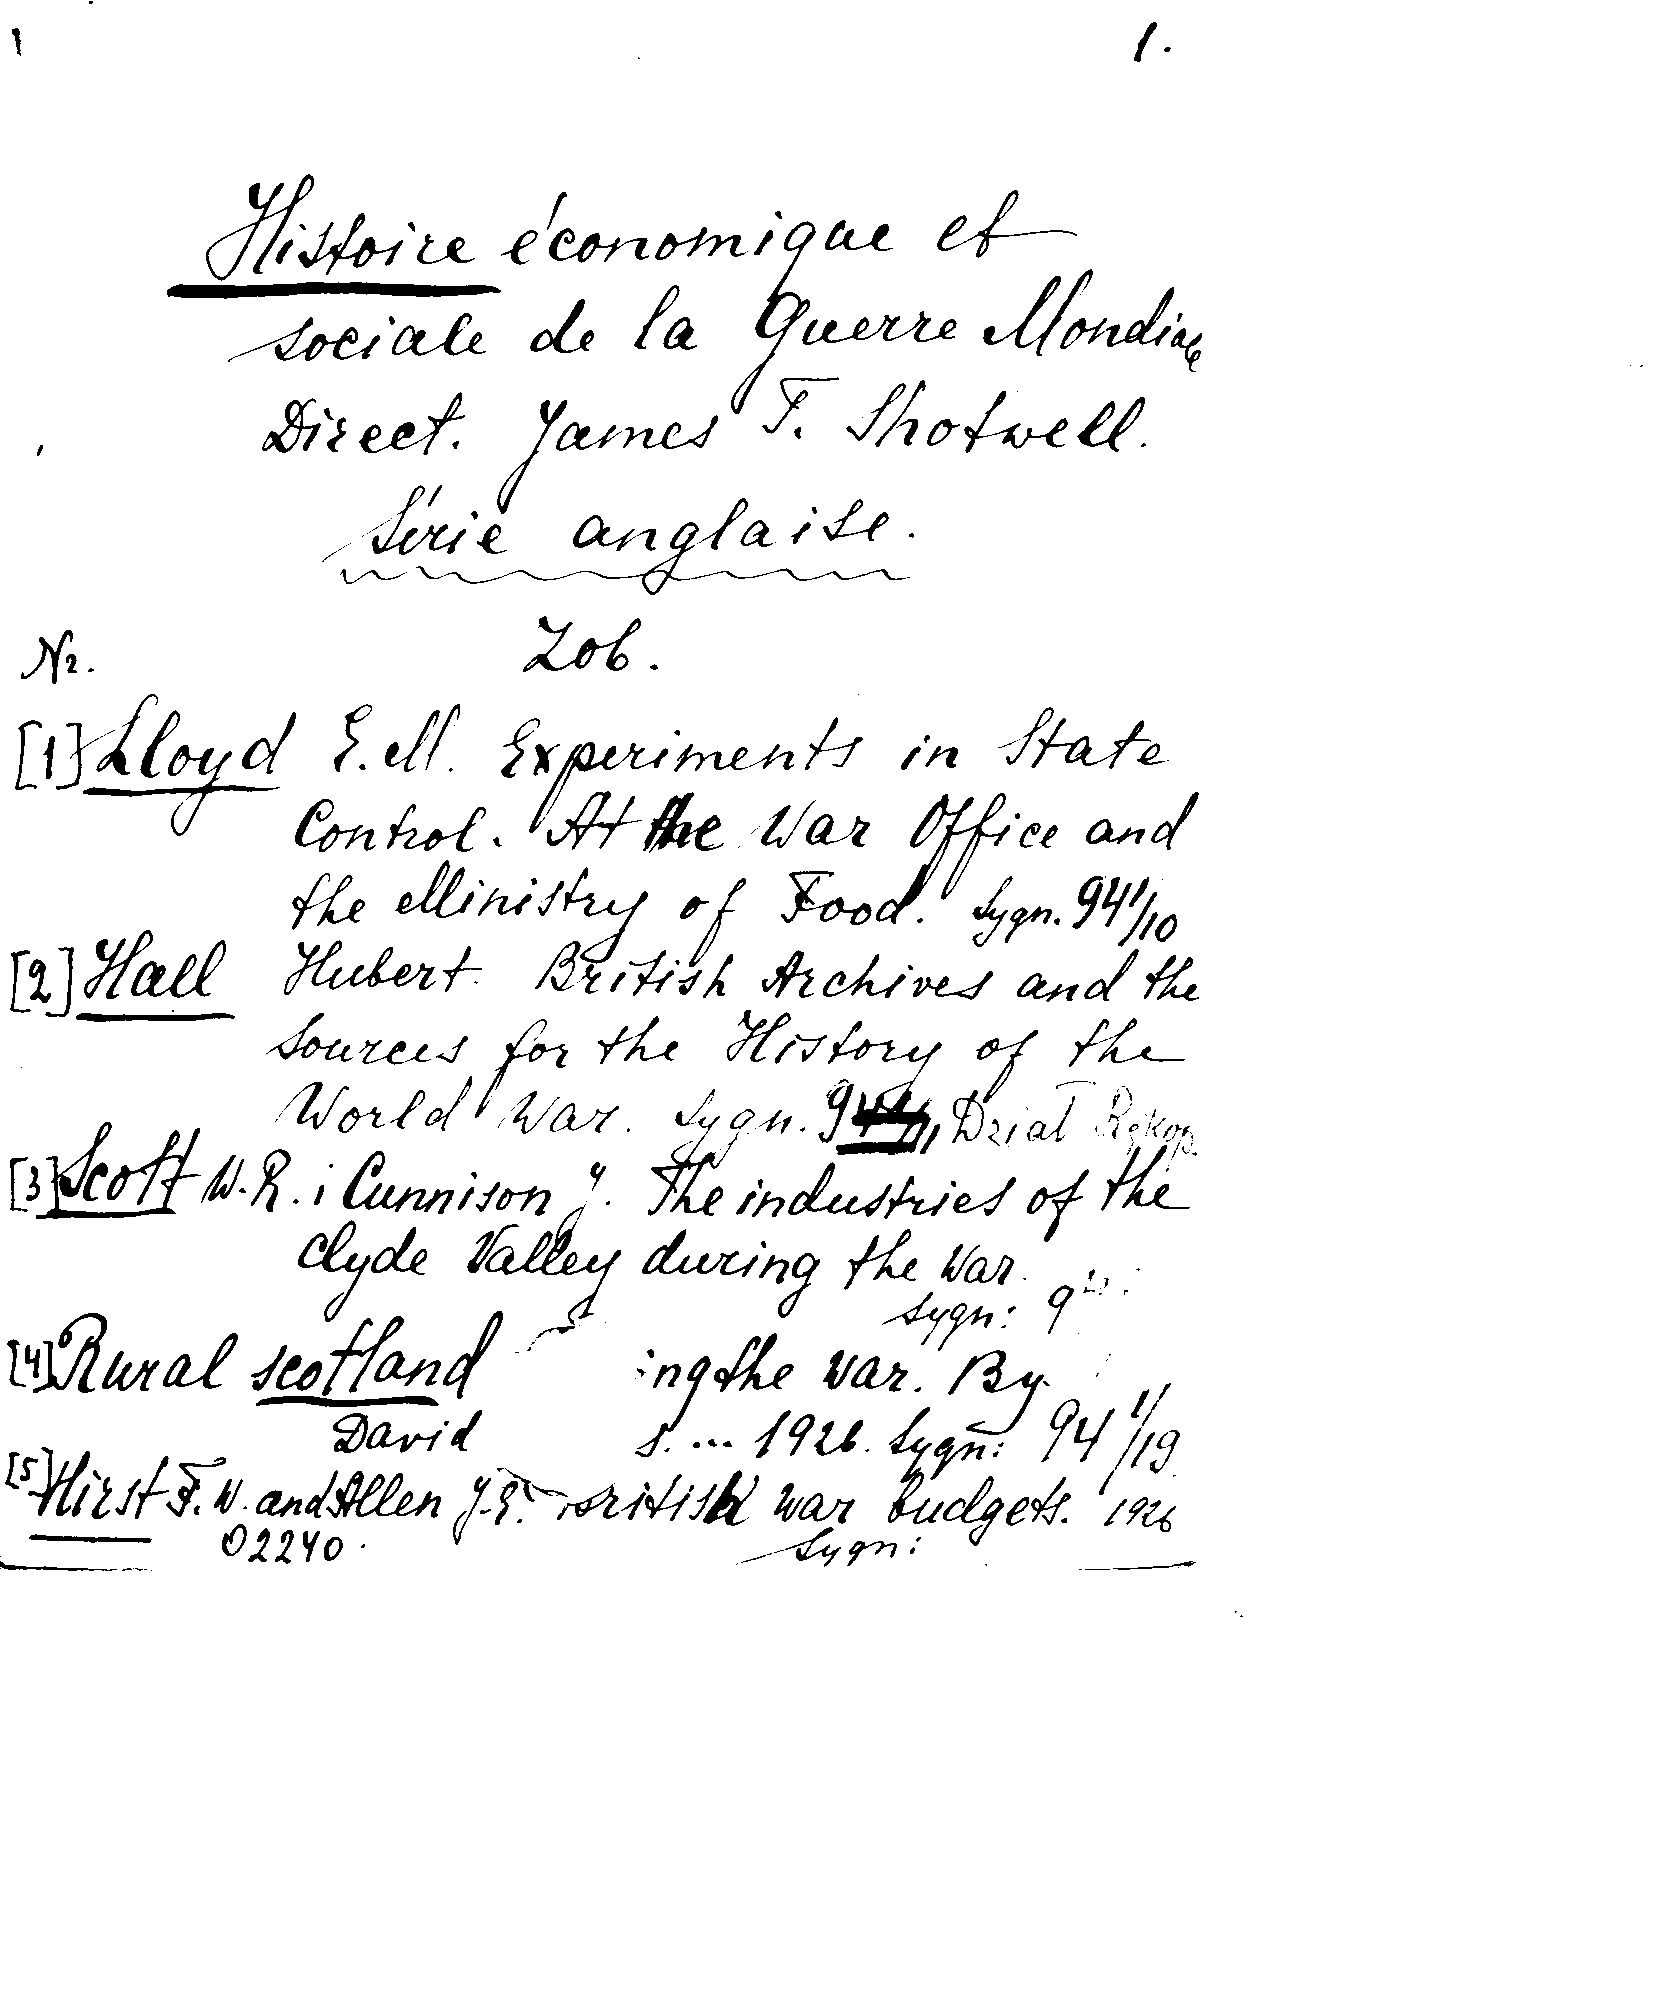 1 1.
Histoire économique et
sociale de la Guerre Mondiale
Direct. James T. Shotwell.
Série anglaise.
Nr. Zob.
[1] Lloyd E. M. Experiments in State
Control. At the War Office and
the Ministry of Food. Sygn. 94 1/10
[2] Hall Hubert. British Archives and the
Sources for the History of the
World War. Sygn. Dział Rękop.
[3] Scott W. R. i Cunnison J. The industries of the
Clyde Valley during the War.
Sygn: 9
[4] Rural Scotland ing the war. By
David s. ... 1926. Sygn: 94 1/19
[5] Hirst F. W. and Allen J. E. British war budgets. 1926
02240. Sygn: